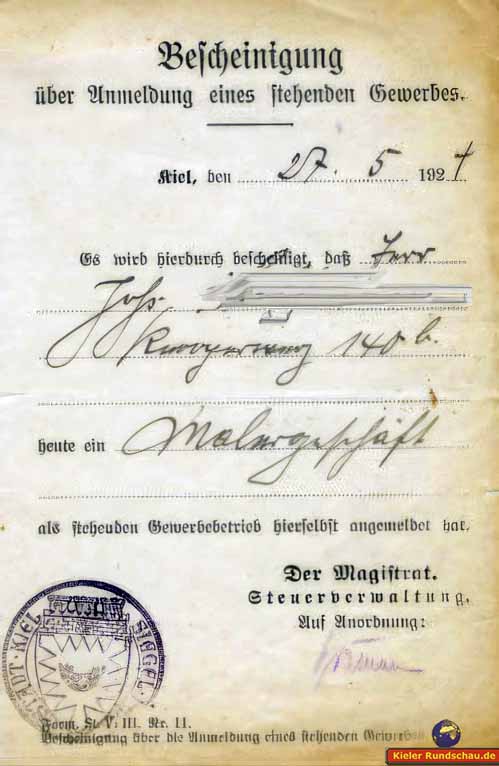 Bescheinigung
über Anmeldung eines stehenden Gewerbes.
Kiel, den 27. 5 1924
Es wird hierdurch bescheinigt, daß Herr
Joh.
140 b.
heute ein Malergeschäft
als stehenden Gewerbebetrieb hierselbst angemeldet hat.
Der Magistrat.
Steuerverwaltung.
Auf Anordnung:
STADT · KIEL SIEGEL
Form. St. V. III. Nr. 11.
Bescheinigung über die Anmeldung eines stehenden
Kieler Rundschau.de